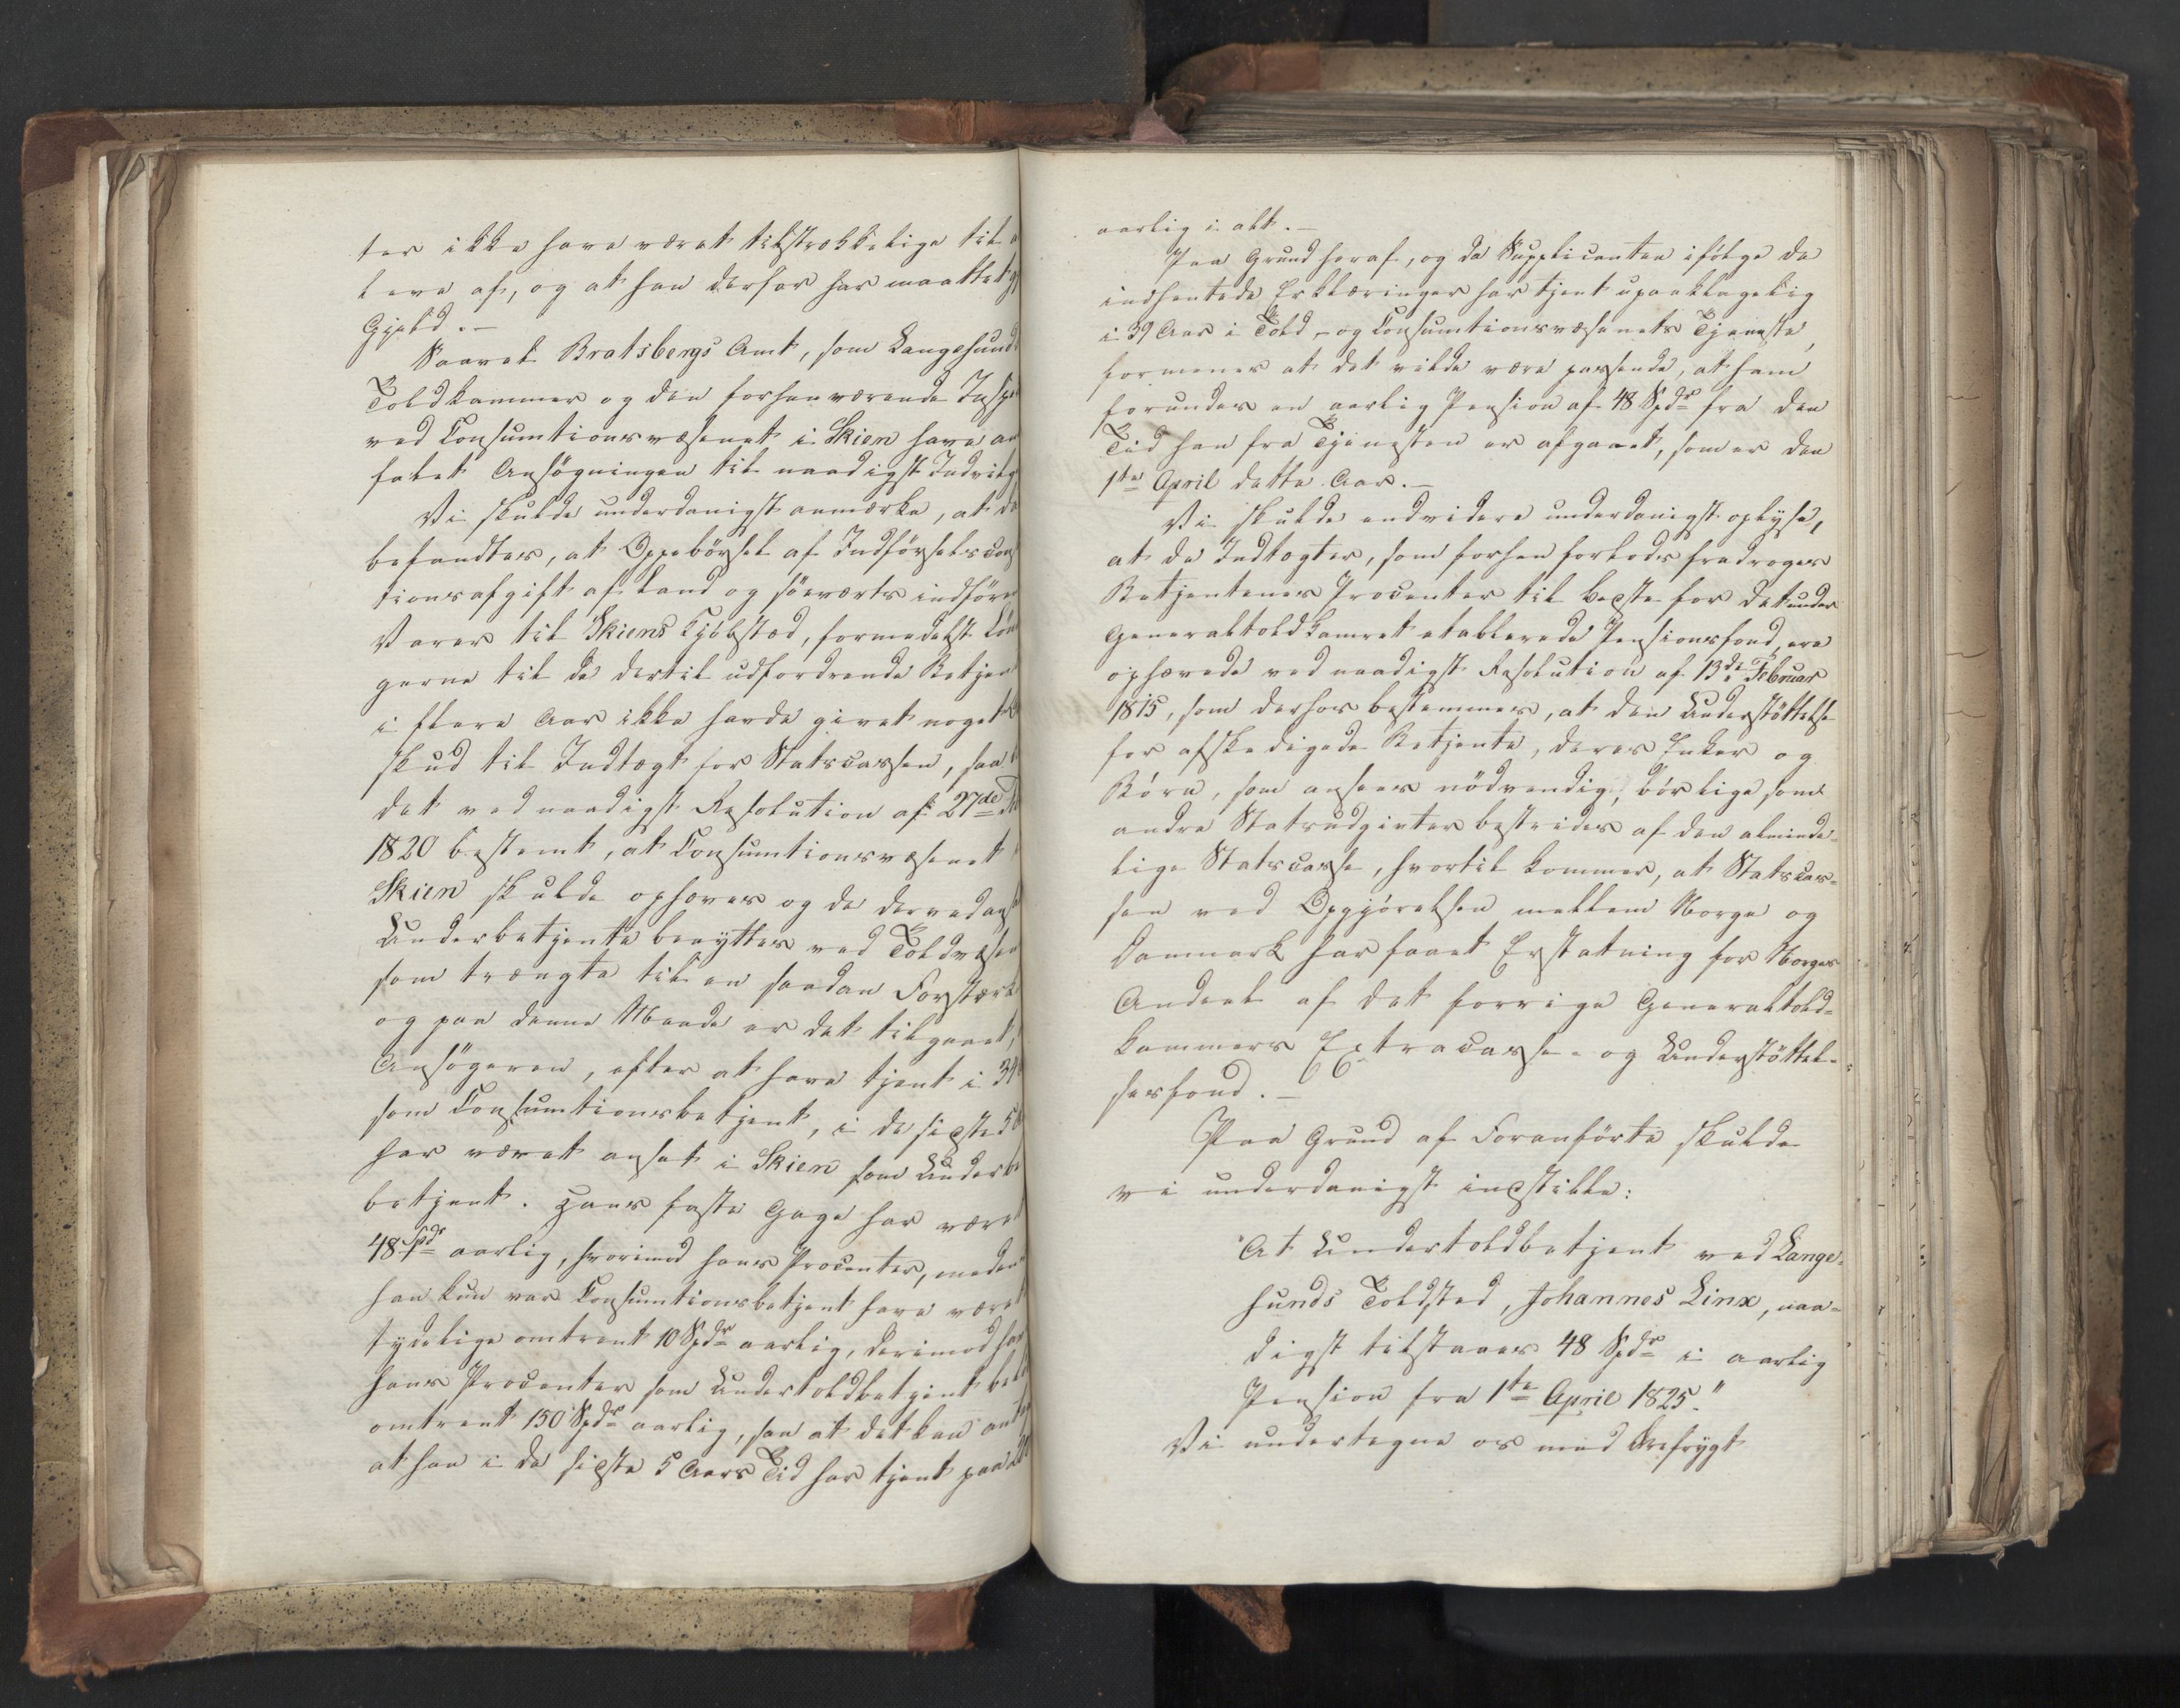 ter ikke have været tilstrækkelige til
leve af, og at han derfor har maattet
Gjeld.-
Saavel Bratsbergs Amt, som Langesund
Toldkammer og den forhenværende Insp
ved Consumtionsvæsenet i Skien have an
falet Ansøgningen til naadigst Indvilg
Vi skulde underdanigst anmærke, at da
befandtes, at Oppebörsel af Indförselscon
tionsafgift af land og söeværts indföre
Varer til Skiens Kjöbstad, formedelst Lön
gerne til de dertil udfordrende Betjen
i flere Aar ikke havde givet noget
skud til Indtægt for Statscassen, saa
det ved naadigst Resolution af 27de
1820 bestemt, at Consumtionsvæsenet
Skien skulde ophæves og de derved ans
Underbetjente benyttes ved Toldvæsen
som trængte til en saadan Forstærk
og paa denne Maade er det tilgaaet,
Ansögeren, efter at have tjent i 34
som Consumtionsbetjent, i de sidste 5
har været ansat i Skien som Under
betjent. Hans faste Gage har været
48 Spdr aarlig, hvorimod hans Procenter, meden
han kun var Consumtionsbetjent have været
tydelige omtrent 10 Spdr aarlig, derimod har
hans Procenter som Undertoldbetjent
omtrent 150 Spdr aarlig, saa at det kan
at han i de sidste 5 Aars Tid har tjent paa
aarlig i alt.-
Paa Grund heraf, og da Supplicanten ifölge de
indhentede Erklæringer har tjent upaaklagelig
i 39 Aar i Told- og Consumtionsvæsenets Tjeneste,
formenes at det vilde være passende, at ham
forundes en aarlig Pension af 48 Spdr fra den
Tid han fra Tjenesten er afgaaet, som er den
1ste April dette Aar.-
Vi skulde endvidere underdanigst oplyse,
at de Indtægter, som forhen forlods fradroges
Betjentenes Procenter til bedste for det under
Generaltoldkamret etablerede Pensionsfond, ere
ophævede ved naadigst Resolution af 13de Februar
1815, som derhos bestemmer, at den Understöttelse
for afskedigede Betjente, deres Enker og
Börn, som ansees nödvendig, bör lige som
andre Statsudgivter bestrides af den alminde-
lige Statscasse, hvortil kommer, at Statscas-
sen ved Opgjörelsen mellem Norge og
Danmark har faaet Erstatning for Norges
Andeel af det forrige Generaltold-
kammers Extracasse- og Understöttel-
sesfond.-
Paa Grund af Foranförte skulde
vi underdanigst indstille:
"At Undertoldbetjent ved Lange-
sunds Toldsted, Johannes Linx, naa-
digst tilstaaes 48 Spdr i aarlig
Pension fra 1ste April 1825."
Vi undertegne os med Ærefrygt